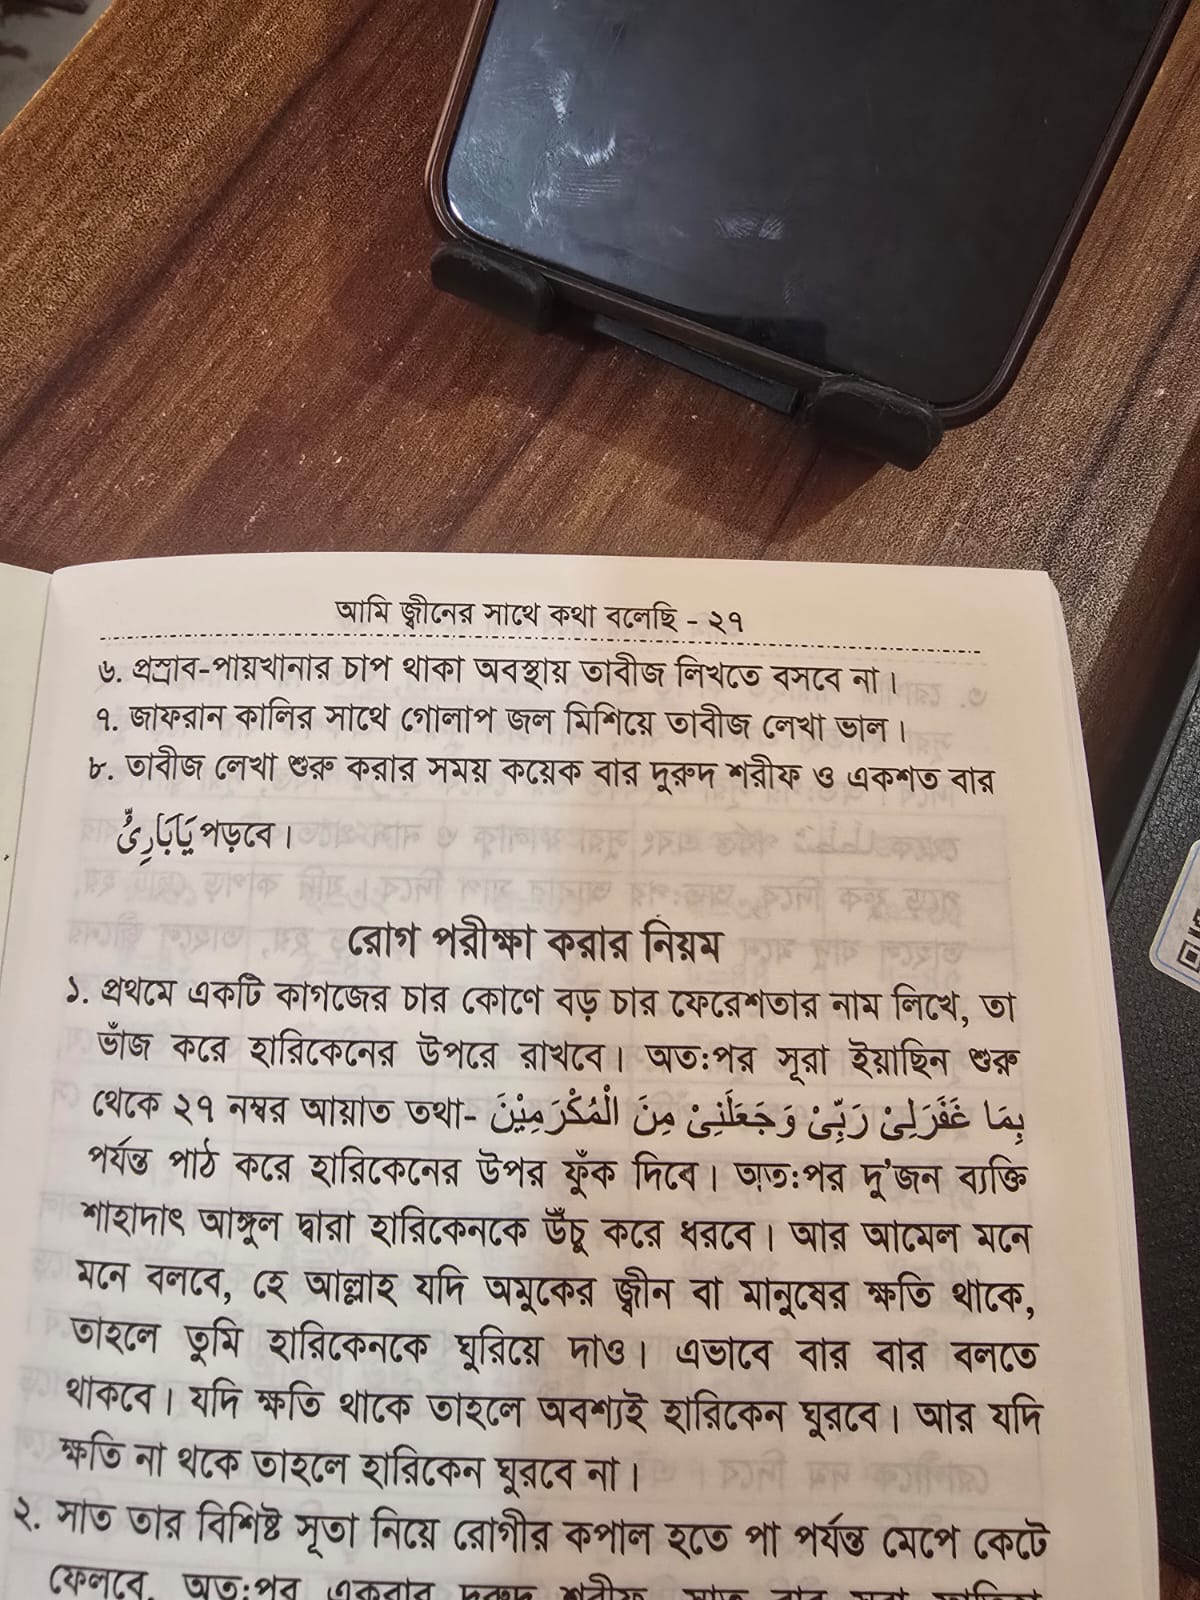 আমি জ্বীনের সাথে কথা বলেছি - ২৭
৬. প্রস্রাব-পায়খানার চাপ থাকা অবস্থায় তাবীজ লিখতে বসবে না।
৭. জাফরান কালির সাথে গোলাপ জল মিশিয়ে তাবীজ লেখা ভাল।
৮. তাবীজ লেখা শুরু করার সময় কয়েক বার দুরুদ শরীফ ও একশত বার
يَابَارِئُ পড়বে।
রোগ পরীক্ষা করার নিয়ম
১. প্রথমে একটি কাগজের চার কোণে বড় চার ফেরেশতার নাম লিখে, তা
ভাঁজ করে হারিকেনের উপরে রাখবে। অত:পর সূরা ইয়াছিন শুরু
থেকে ২৭ নম্বর আয়াত তথা- بِمَا غَفَرَلِىْ رَبِّىْ وَجَعَلَنِىْ مِنَ الْمُكْرَمِيْنَ
পর্যন্ত পাঠ করে হারিকেনের উপর ফুঁক দিবে। অত:পর দু'জন ব্যক্তি
শাহাদাৎ আঙ্গুল দ্বারা হারিকেনকে উঁচু করে ধরবে। আর আমেল মনে
মনে বলবে, হে আল্লাহ যদি অমুকের জ্বীন বা মানুষের ক্ষতি থাকে,
তাহলে তুমি হারিকেনকে ঘুরিয়ে দাও। এভাবে বার বার বলতে
থাকবে। যদি ক্ষতি থাকে তাহলে অবশ্যই হারিকেন ঘুরবে। আর যদি
ক্ষতি না থকে তাহলে হারিকেন ঘুরবে না।
২. সাত তার বিশিষ্ট সূতা নিয়ে রোগীর কপাল হতে পা পর্যন্ত মেপে কেটে
ফেলবে. অত:পর একবার দুরুদ শরীফ, সাত বার সূরা ফাতিহা